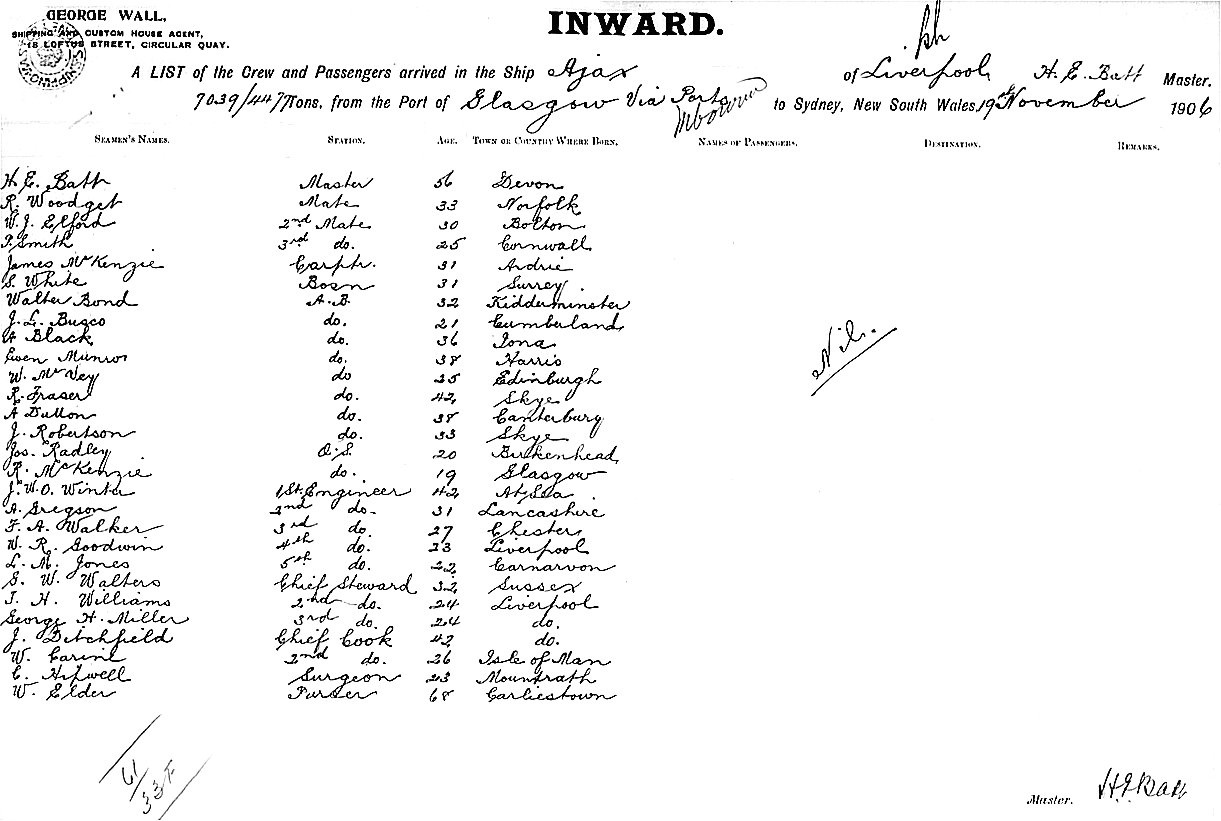 GEORGE WALL,
SHIPPING AND CUSTOM HOUSE AGENT,
18 LOFTUS STREET, CIRCULAR QUAY.
INWARD.
A LIST of the Crew and Passengers arrived in the Ship Ajax of Liverpool, H. E. Batt Master.
7039/4477 Tons, from the Port of Glasgow Via Ports Mbourne to Sydney, New South Wales, 19th November 1906
SEAMEN'S NAMES. STATION. AGE. TOWN OR COUNTRY WHERE BORN. NAMES OF PASSENGERS. DESTINATION. REMARKS.
H. E. Batt Master 56 Devon
R. Woodget Mate 33 Norfolk
W. J. Elford 2nd Mate 30 Bolton
P. Smith 3rd do. 25 Cornwall
James McKenzie Carptr. 31 Ardrie
S. White Bosn 31 Surrey
Walter Bond A.B. 32 Kidderminster
J. L. Bugco do. 21 Cumberland
A Black do. 36 Iona
Ewen Munro do. 38 Harris
W. McVey do 25 Edinburgh
R. Fraser do. 42 Skye
A Dutton do. 38 Canterbury
J. Robertson do. 33 Skye
Jos. Radley O.S. 20 Birkenhead
R. McKenzie do. 19 Glasgow
J. W. O. Winter 1st Engineer 42 At Sea
A. Gregson 2nd do. 31 Lancashire
F. A. Walker 3rd do. 27 Chester
W. R. Goodwin 4th do. 23 Liverpool
L. M. Jones 5th do. 22 Carnarvon
S. W. Walters Chief Steward 32 Sussex
T. H. Williams 2nd do. 24 Liverpool
George H. Miller 3rd do. 24 do.
J. Ditchfield Chief Cook 42 do.
W. Carine 2nd do. 26 Isle of Man
C. Hipwell Surgeon 23 Mountrath
W. Elder Purser 68 Garliestown
Nil.
61/33F
Master. H. E. Batt